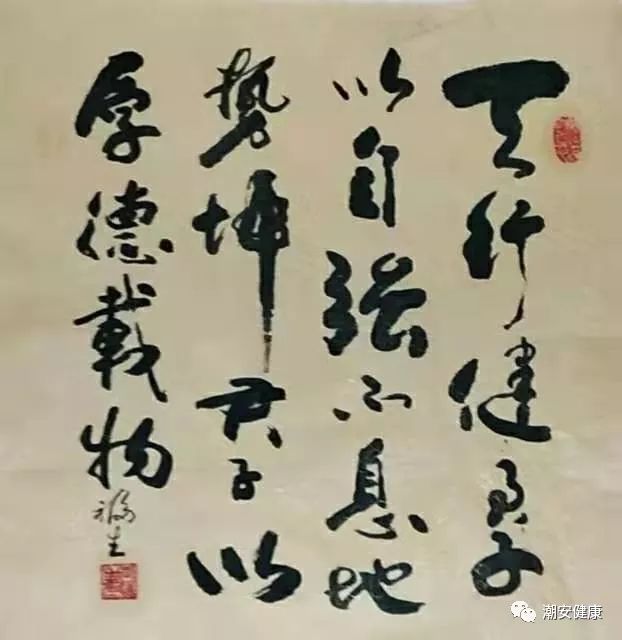 天行健君子
以自强不息地
势坤君子以
厚德载物
福生
潮安健康